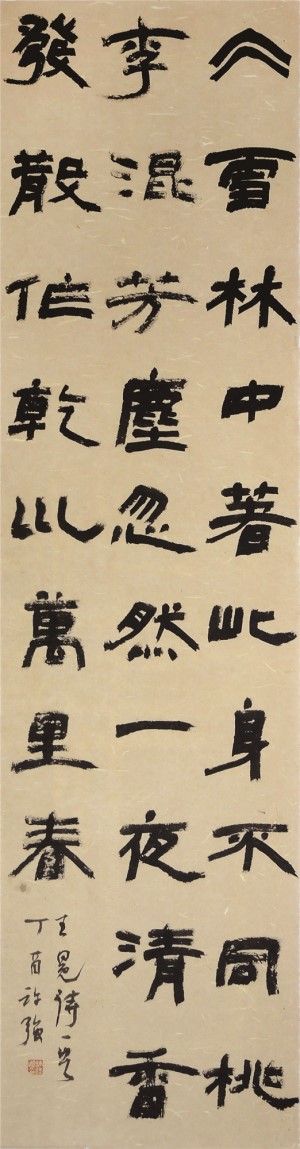 仌雪林中著此身不同桃
李混芳塵忽然一夜清香
發散作乾巛萬里春
王冕詩一首
丁酉許强